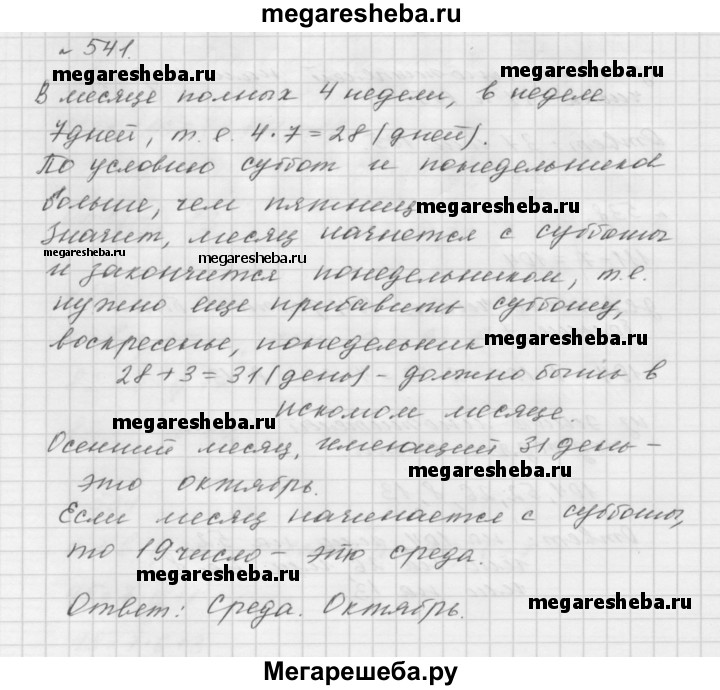 megaresheba.ru
№ 541.
megaresheba.ru
megaresheba.ru
В месяце полных 4 недели, в неделе
7 дней, т. е. 4 · 7 = 28 (дней).
По условию суббот и понедельников
больше, чем пятниц
megaresheba.ru
Значит, месяц начнется с субботы
megaresheba.ru
megaresheba.ru
и закончится понедельником, т.е.
нужно еще прибавить субботу,
воскресенье, понедельник
megaresheba.ru
28 + 3 = 31 (день) - должно быть в
искомом месяце.
megaresheba.ru
Осенний месяц, имеющий 31 день -
это октябрь.
megaresheba.ru
Если месяц начинается с субботы,
то 19 число - это среда.
megaresheba.ru
Ответ: Среда. Октябрь.
megaresheba.ru
Мегарешеба.ру